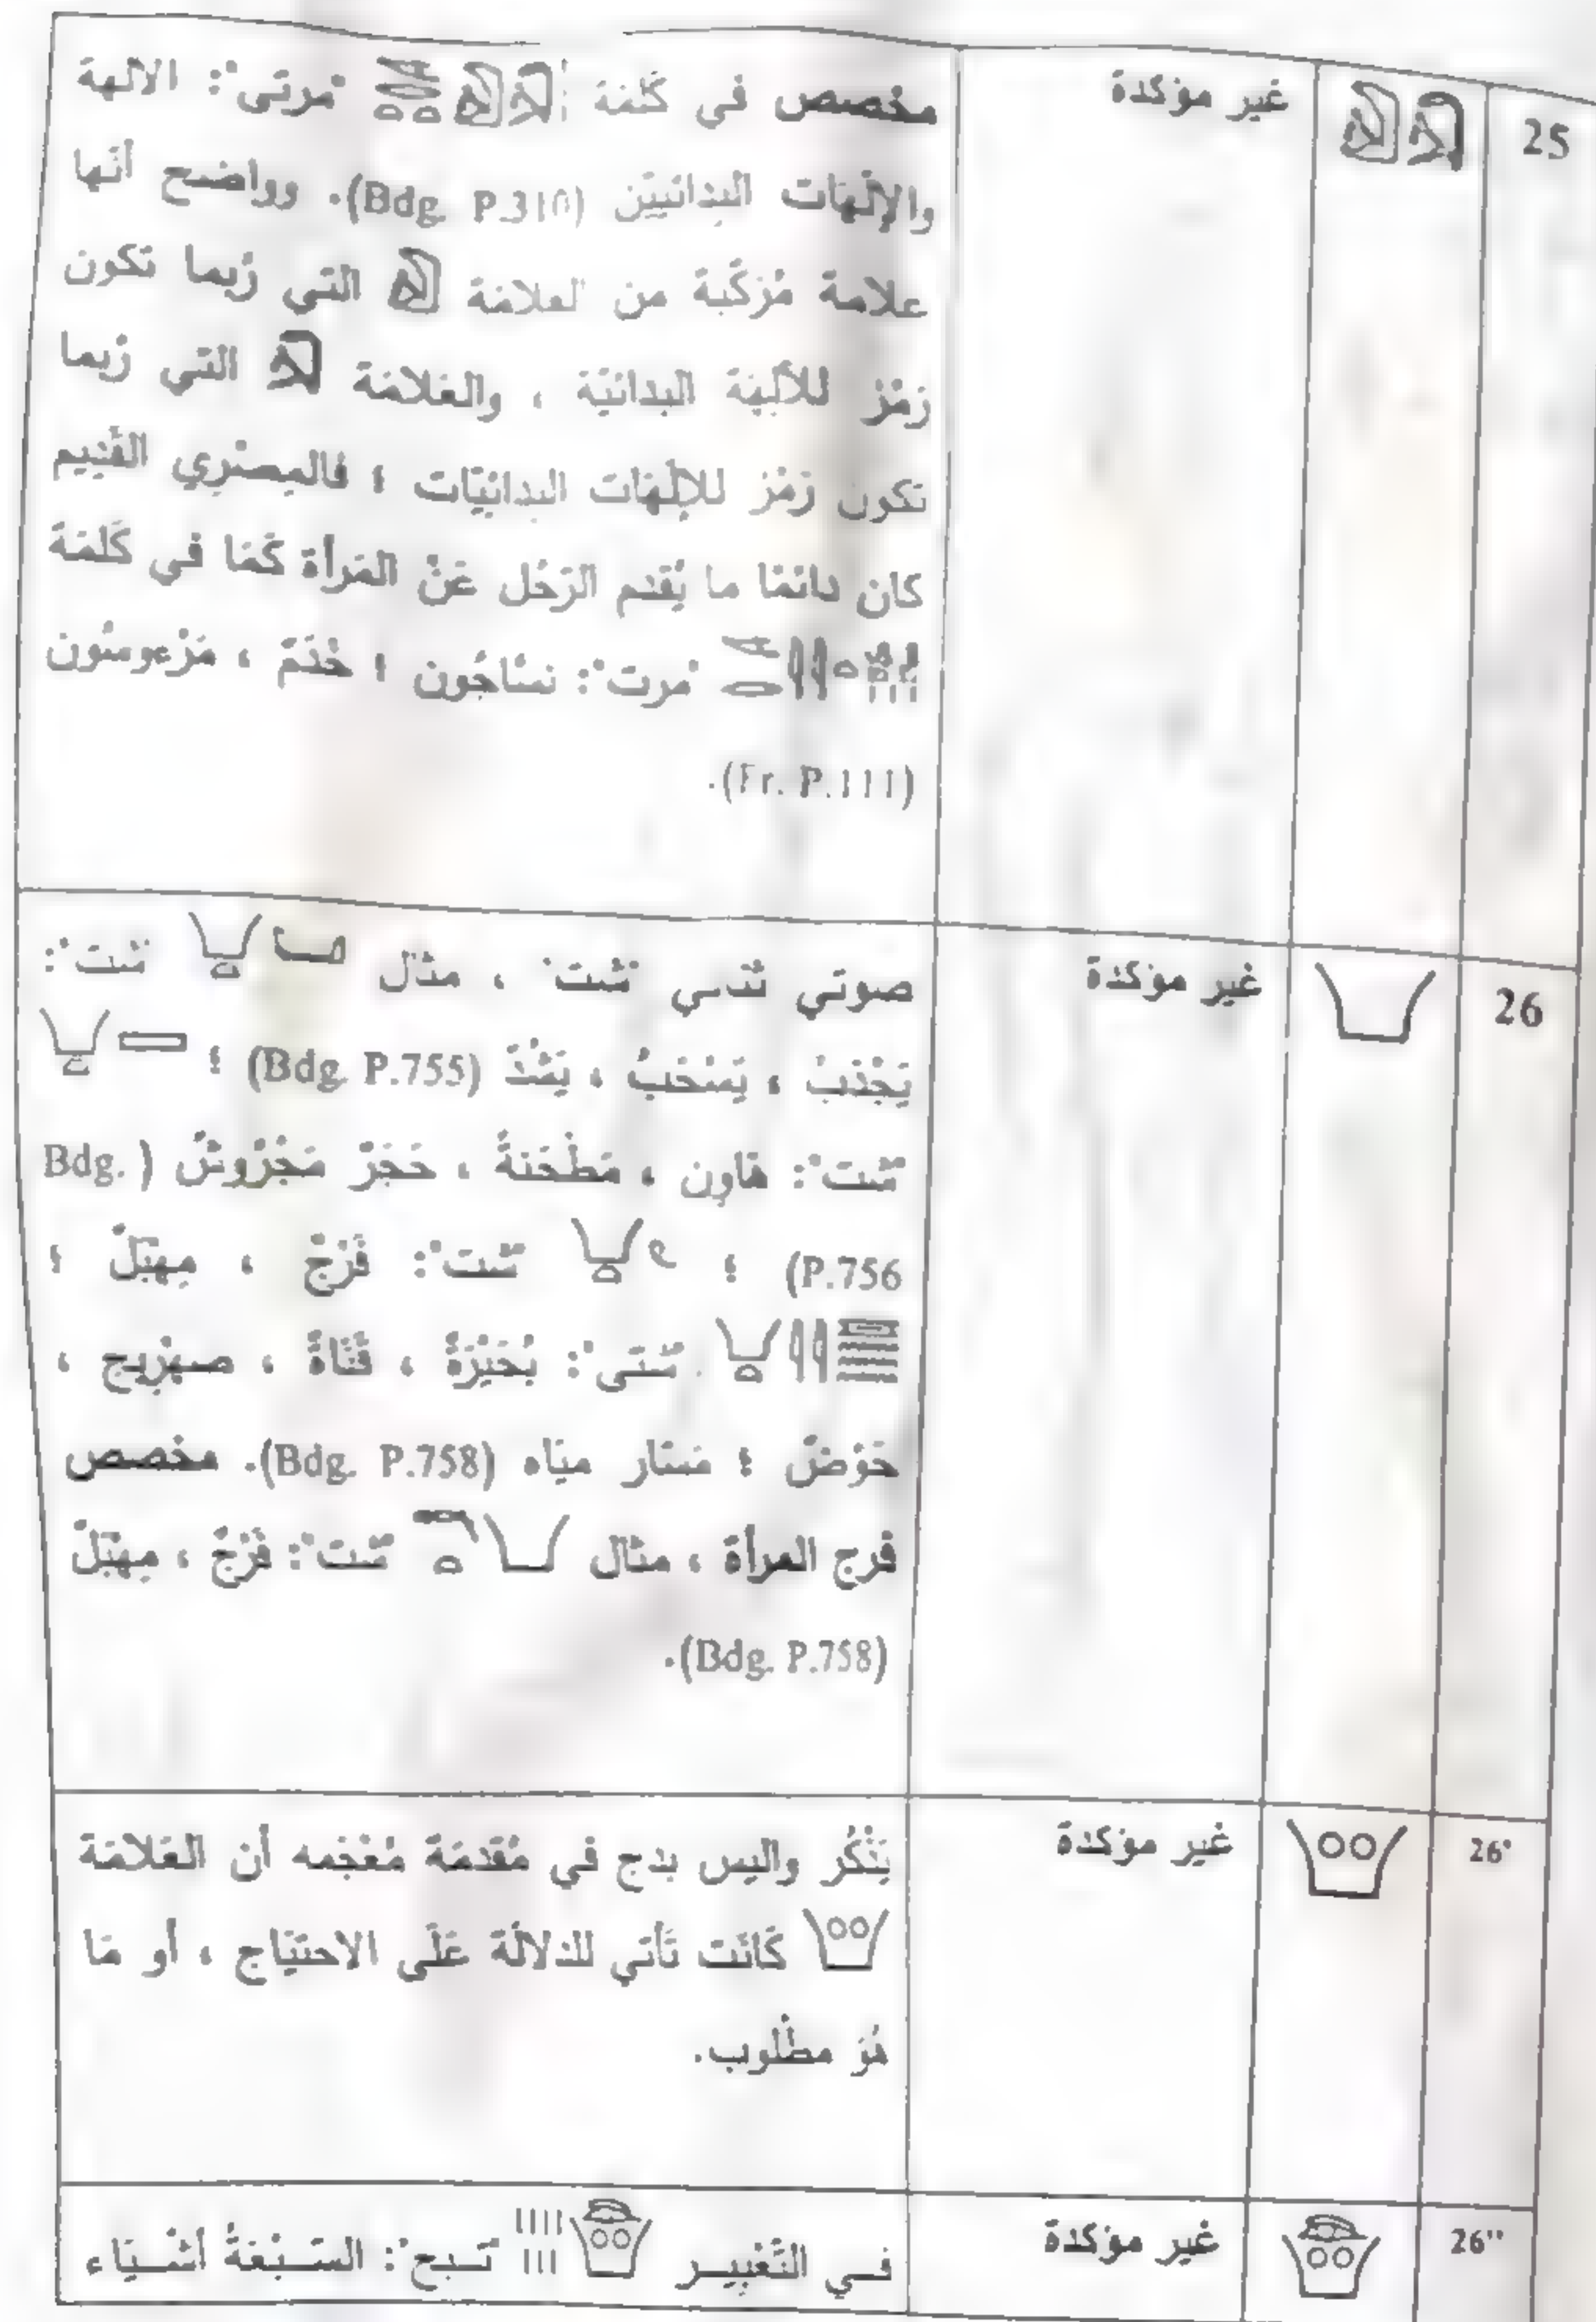 25
غير مؤكدة
مخصص في كَلمَة "مرتى": الآلهة
والإلَهَات البدائيين (Bdg. P.310). وواضح أنَّها
علامة مُرَكَّبة من العلامَة التي رُبما تكون
رَمْز للآلِهَة البدائيَّة ، والعَلامَة التي رُبما
تكون رَمْز للإلَهَات البدائيَّات ؛ فالمِصْرِي القَدِيم
كان دائمًا ما يُقدم الرَجُل عَنْ المَرأة كَمَا في كَلمَة
"مرت": نسَّاجُون ؛ خَدَمٌ ، مَرْءوسُون
(Fr. P.111).
26
غير مؤكدة
صوتي ثُنائي "شت" ، مثال "شت":
يَجْذبُ ، يَسْحَبُ ، يَشُدّ (Bdg. P.755) ؛
"شت": هَاوِن ، مَطْحَنةٌ ، حَجَرٌ مَجْرُوشٌ (Bdg.
P.756) ؛ "شت": فَرْجٌ ، مِهبَلٌ ؛
"شتى": بُحَيْرَةٌ ، قَنَاةٌ ، صهْرِيج ،
حَوْضٌ ؛ مَسَار ميَاه (Bdg. P.758). مخصص
فرج المرأة ، مثال "شت": فَرْجٌ ، مِهْبَلٌ
(Bdg. P.758).
26'
غير مؤكدة
يَذْكُر واليس بدج في مُقَدمَة مُعْجَمه أن العَلامَة
كَانَت تَأتي للدَلالَة عَلَى الاحتيَاج ، أو مَا
هُوَ مطْلوب.
26''
غير مؤكدة
في التَّعْبِير : السَّبْعَةُ أشْيَاء